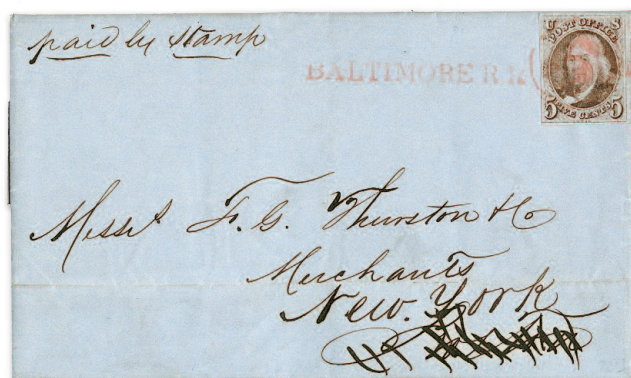 paid by stamp
BALTIMORE R
POST OFFICE
FIVE CENTS
5 5
Messrs F. G. Thurston & Co
Merchants
New. York